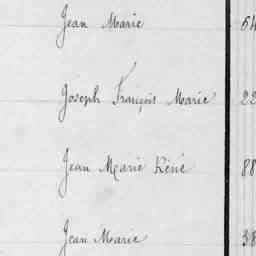 Jean Marie 54
Joseph François Marie 22
Jean Marie Réné 88
Jean Marie 38